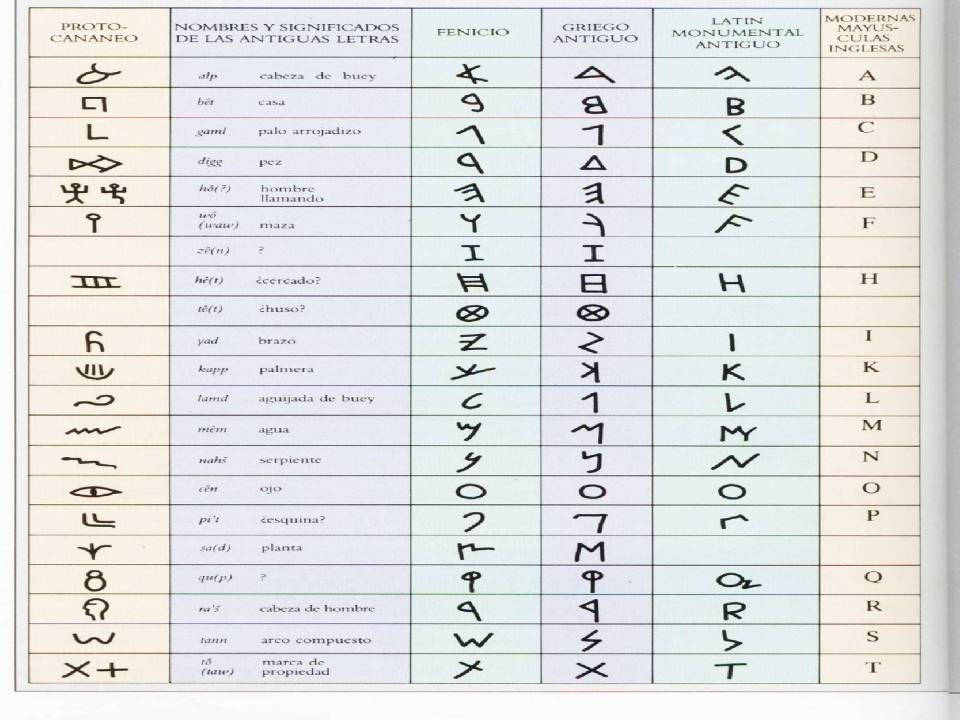 PROTO-
CANANEO
NOMBRES Y SIGNIFICADOS
DE LAS ANTIGUAS LETRAS
FENICIO
GRIEGO
ANTIGUO
LATIN
MONUMENTAL
ANTIGUO
MODERNAS
MAYUS-
CULAS
INGLESAS
alp cabeza de buey A
bêt casa B
gaml palo arrojadizo C
digg pez D
hô(?) hombre
llamando E
wô
(waw) maza F
zê(n) ?
hê(t) ¿cercado? H
tê(t) ¿huso?
yad brazo I
kapp palmera K
lamd aguijada de buey L
mêm agua M
nahš serpiente N
cên ojo O
pi't ¿esquina? P
sa(d) planta
qu(p) ? Q
ra'š cabeza de hombre R
tann arco compuesto S
tô
(taw) marca de
propiedad T